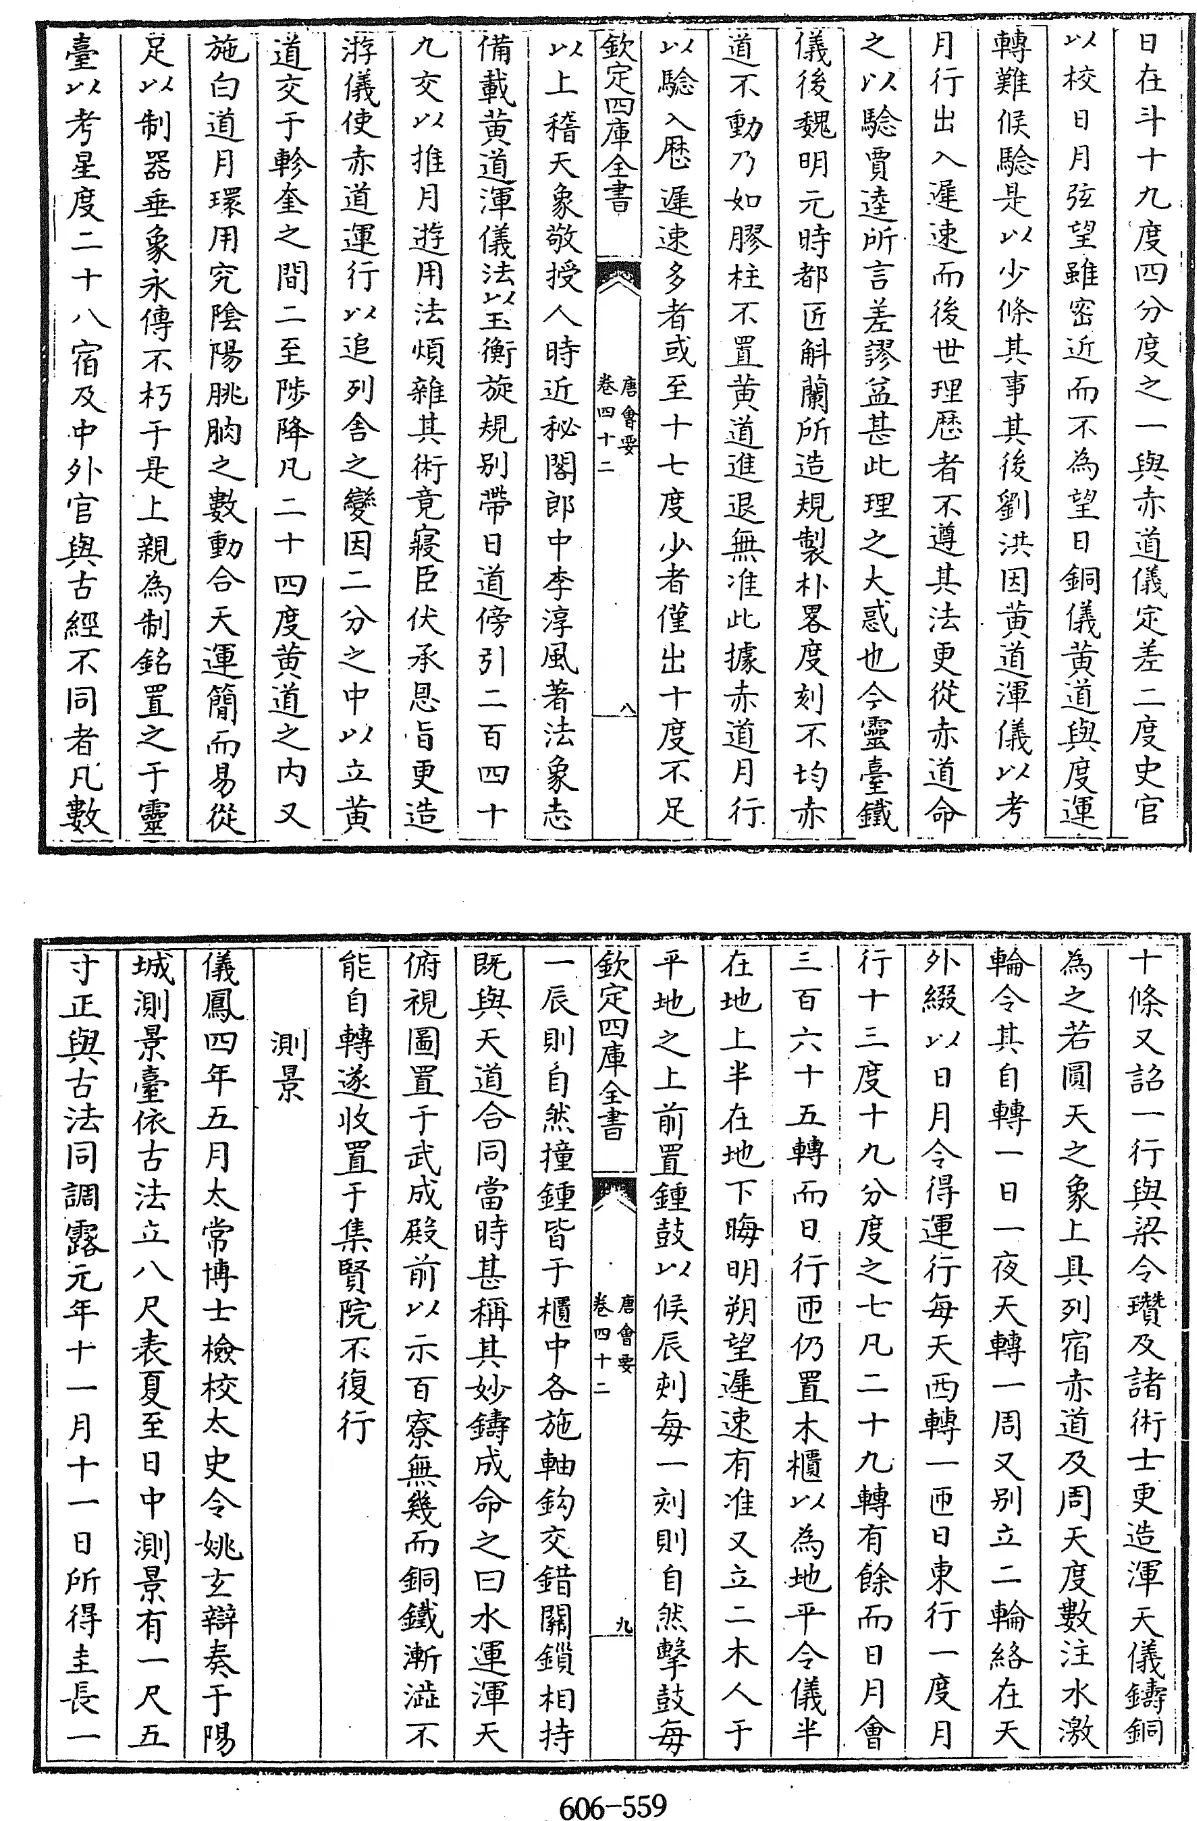 日在斗十九度四分度之一與赤道儀定差二度史官
以校日月弦望雖密近而不為望日銅儀黄道與度運
轉難候驗是以少條其事其後劉洪因黄道渾儀以考
月行出入遲速而後世理厯者不遵其法更從赤道命
之以驗賈逵所言差謬益甚此理之大惑也今靈臺鐵
儀後魏明元時都匠斛蘭所造規製朴畧度刻不均赤
道不動乃如膠柱不置黄道進退無准此據赤道月行
以驗入厯遲速多者或至十七度少者僅出十度不足
欽定四庫全書
唐會要
卷四十二
八
以上稽天象敬授人時近秘閣郎中李淳風著法象志
備載黄道渾儀法以玉衡旋規别帶日道傍引二百四十
九交以推月遊用法煩雜其術竟寢臣伏承恩旨更造
游儀使赤道運行以追列舎之變因二分之中以立黄
道交于軫奎之間二至陟降凡二十四度黄道之内又
施白道月環用究陰陽朓朒之數動合天運簡而易從
足以制器垂象永傳不朽于是上親為制銘置之于靈
臺以考星度二十八宿及中外官與古經不同者凡數
十條又詔一行與梁令瓚及諸術士更造渾天儀鑄銅
為之若圓天之象上具列宿赤道及周天度數注水激
輪令其自轉一日一夜天轉一周又别立二輪絡在天
外綴以日月令得運行每天西轉一匝日東行一度月
行十三度十九分度之七凡二十九轉有餘而日月會
三百六十五轉而日行匝仍置木櫃以為地平令儀半
在地上半在地下晦明朔望遲速有准又立二木人于
平地之上前置鍾鼓以候辰刻每一刻則自然擊鼓每
欽定四庫全書
唐會要
卷四十二
九
一辰則自然撞鍾皆于櫃中各施軸鈎交錯關鎖相持
既與天道合同當時甚稱其妙鑄成命之曰水運渾天
俯視圖置于武成殿前以示百寮無幾而銅鐵漸澁不
能自轉遂收置于集賢院不復行
測景
儀鳳四年五月太常博士檢校太史令姚玄辯奏于陽
城測景臺依古法立八尺表夏至日中測景有一尺五
寸正與古法同調露元年十一月十一日所得圭長一
606-559